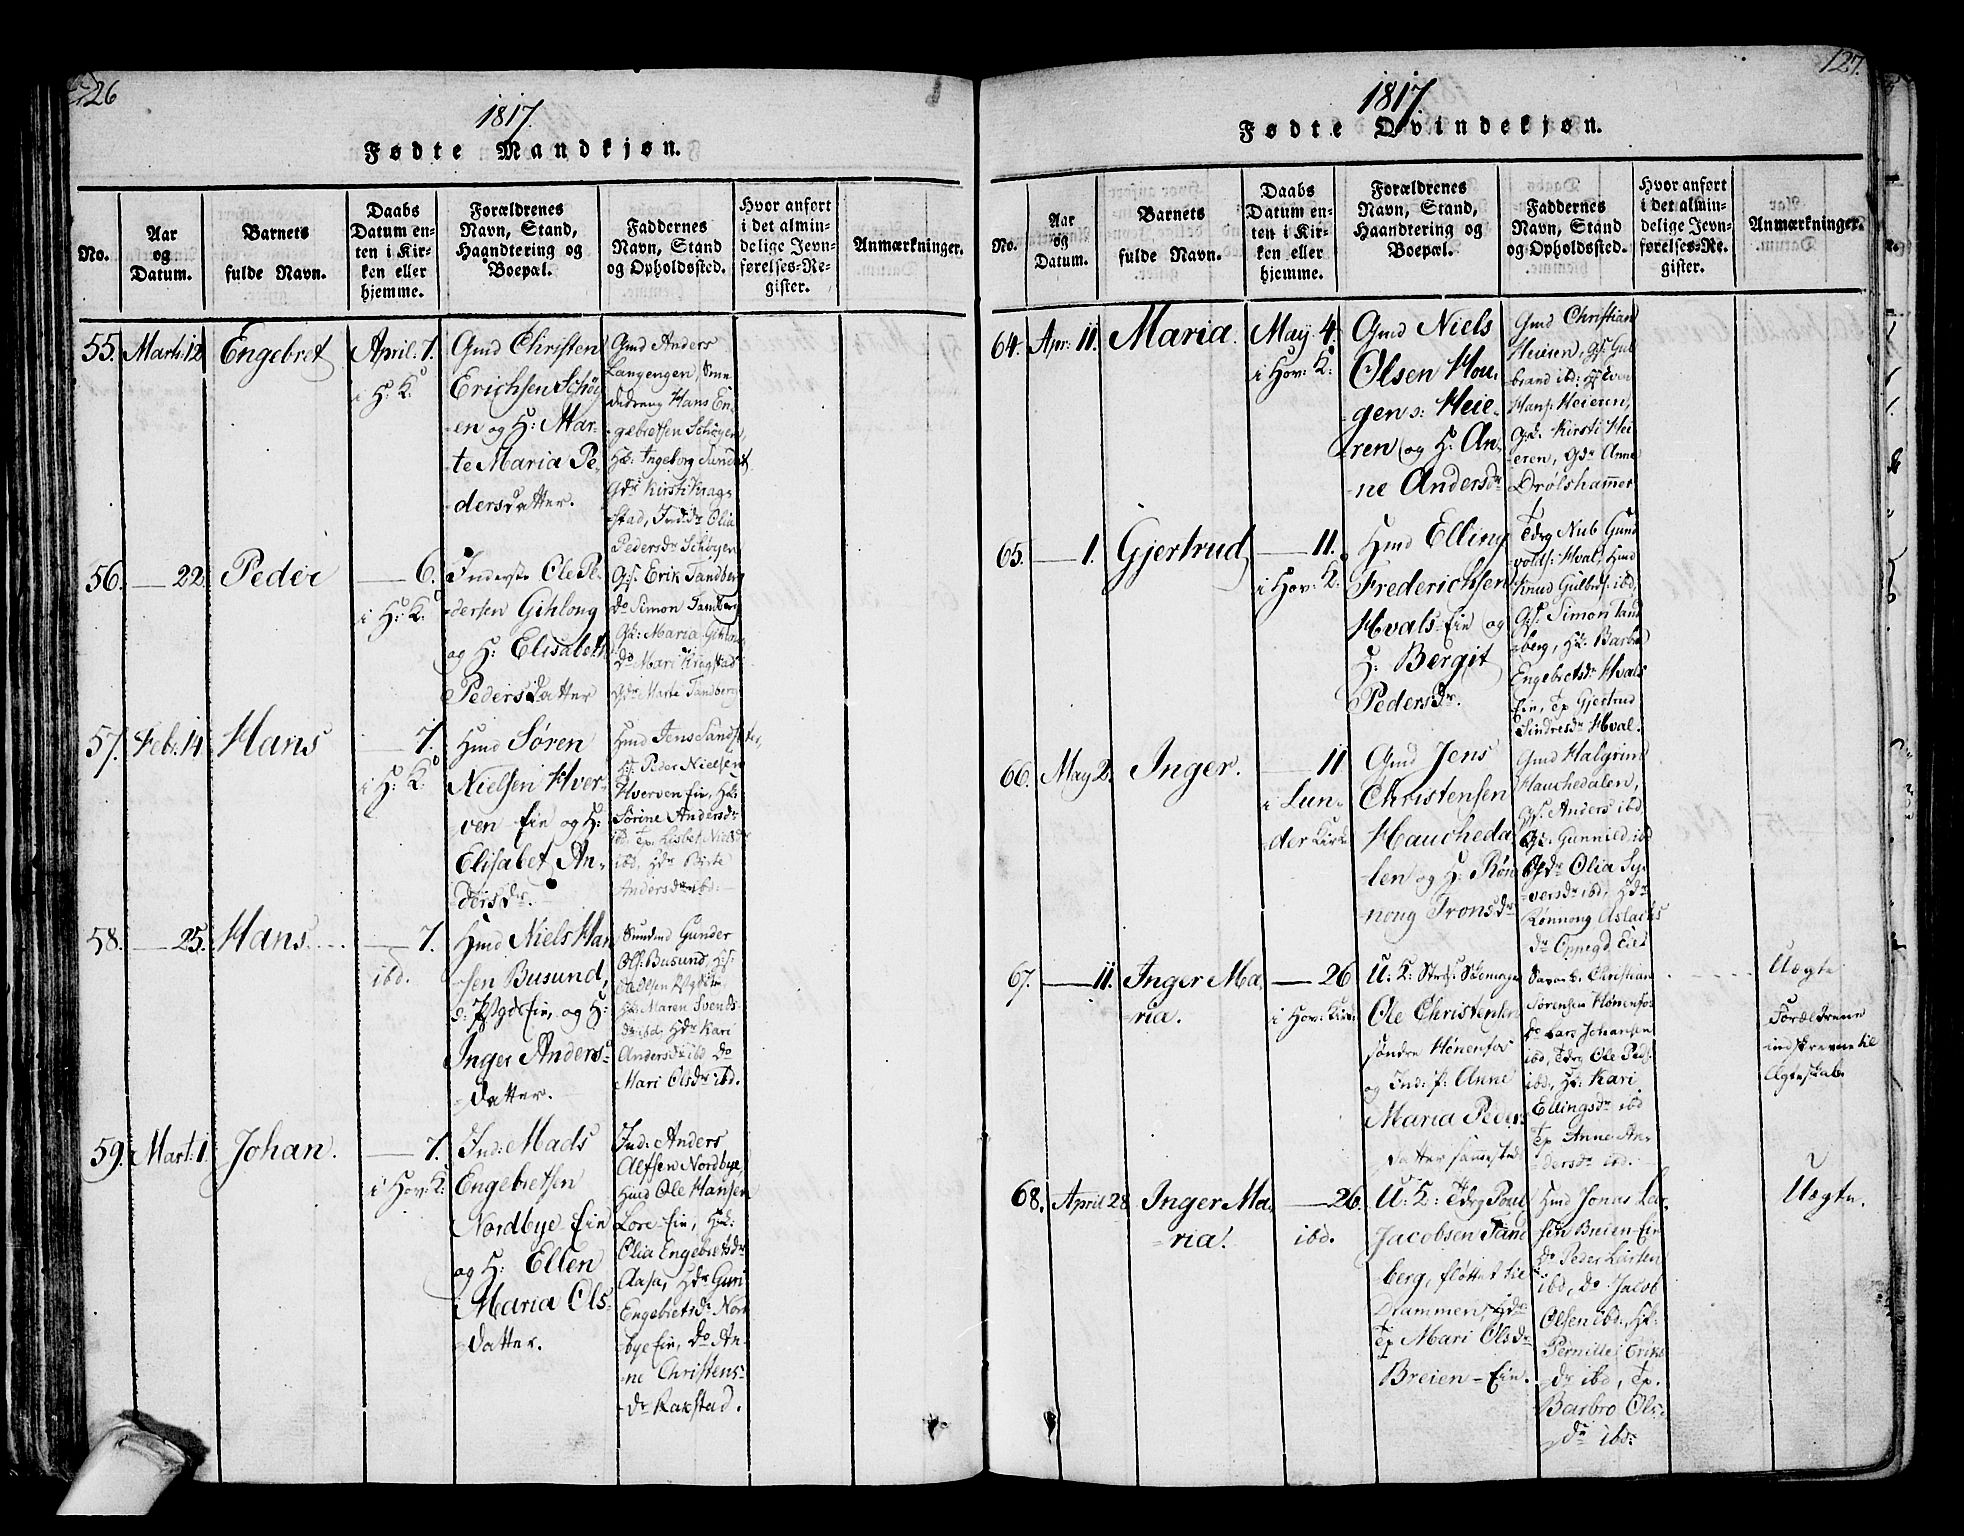 126
1817.
Fødte Mandkjøn.
No.
Aar
og
Datum.
Barnets
fulde Navn.
Daabs
Datum en-
ten i Kir-
ken eller
hjemme.
Forældrenes
Navn, Stand,
Haandtering og
Boepæl.
Faddernes
Navn, Stand
og Opholdssted.
Hvor anført
i det almin-
delige Jevn-
førelses-Re-
gister.
Anmærkninger.
55. Marti 12. Engebret April. 7.
i H: K:
Gmd Christen
Erichsen Schøy-
en og H: Mar-
te Maria Pe-
dersdatter.
Gmd Anders
Langengen,
Hans En-
gebretsen Schøyen,
Hk: Ingeborg
Gdr Kirsti Krag-
stad, Ind: dr Olia
Pedersdr Schøyen
56. — 22. Peder — 6.
i H: K:
Inderste Ole Pe-
dersen Gihlong
og H: Elisabeth
Pedersdatter
Gs. Erik Tandberg
do Simon Tandberg
Gk: Maria Gihlong
do Mari Kragstad
Gdr Marte Tandberg
57. Febr. 14 Hans — 7.
i H: K:
Hmd Søren
Nielsen Hver-
ven Eie og H:
Elisabet An-
dersdr.
Hmd Jens
Hs: Peder Nielsen
Hverven Eie, Hk:
Sørine Andersdr
ibd, Tp. Lisbet Nielsdr
ibd, Hdr Birte
Andersdr ibd:
58. — 25. Hans. — 7.
ibd.
Hmd Niels Han-
sen Busund,
Eie, og H:
Inger Anders-
datter.
Gunder
Ols: Busund, Hs:
Hk: Maren Svends-
dr ibd, Hdr Kari
Andersdr ibd do
Mari Olsdr ibd.
59. Mart: 1. Johan. — 7.
i Hov: K:
Ind: Mads
Engebretsen
Nordbye Eie
og H: Ellen
Maria Ols-
datter.
Ind: Anders
Alfsen Nordbye,
Hmd Ole Hansen
Lore-Eie, Hk:
Olia Engebretsdr
Aasa, Hdr Guri
Engebretsdr Nord-
bye Eie, do An-
ne Christens-
dr Rakstad.
127.
1817.
Fødte Qvindekjøn.
No.
Aar
og
Datum.
Barnets
fulde Navn.
Daabs
Datum en-
ten i Kir-
ken eller
hjemme.
Forældrenes
Navn, Stand,
Haandtering og
Boepæl.
Faddernes
Navn, Stand
og Opholdssted.
Hvor anført
i det almin-
delige Jevn-
førelses-Re-
gister.
Anmærkninger.
64. Apr: 11. Maria. May. 4.
i Hov: K:
Gmd Niels
Olsen Hou-
gen s: Heie-
ren og H: An-
ne Andersdr
Gmd Christian
Heieren, Gs: Gul-
brand ibd: Hs Even
Hans: Heieren,
Gk. Kirsti Hei-
eren, Gdr Anne
Drølshammer
65. — 1. Gjertrud — 11.
i Hov: K:
Hmd Elling
Frederichsen
Hvals-Eie og
H: Bergit
Pedersdr.
Tdrg Nub Gund-
volds: Hval, Hmd
Knud Gulbrs: ibd,
Gs: Simon Tand-
berg, Hk: Barbro
Engebretsdr Hvals
Eie, Tp Gjertrud
Sindresdr Hval.
66. May 2. Inger. — 11
i Lun-
der Kirke
Gmd Jens
Christensen
Haucheda-
len og H: Røn-
noug Tronsdr
Gmd Halgrim
Hauchedalen,
Gs. Anders ibd,
Gk: Gunnild ibd
Gdr Olia Sy-
versdr ibd, Hdr
Rønnoug Aslachs-
dr Oppegd Eie
67. — 11. Inger Ma-
ria.
— 26
i Hov: Kirk:
U: K:
Ole Christensen
søndre Hønenfos
og Ind: p: Anne
Maria Peders-
datter sammested
Christian
Sørensen Hønenfos
do Lars Johansen
ibd, Tdrg Ole Peds:
ibd, Hk: Kari
Ellingsdr ibd
Tp Anne An-
dersdr ibd.
Uægte
Forældrene
indskrevne til
Ægteskab
68. April 28 Inger Ma-
ria.
— 26.
ibd.
U: K: Tdrg Poul
Jacobsen Tand-
berg, fløttet til
Drammen,
Tp Mari Olsdr
Breien-Eie.
Hmd Jonas Lar-
sen Breien-Eie
do Peder Larsen
ibd, do Jacob
Olsen ibd, Hk:
Pernille Eriks-
dr ibd, Tp.
Barbro Ols-
dr ibd:
Uægte.